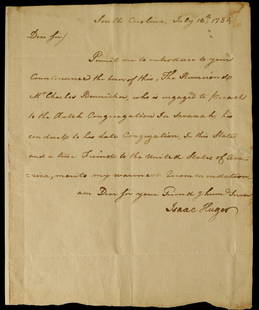 South Carolina, July 16th 178
Dear Sir
Permit me to introduce to your
Countenance the bearer of this, The Reverend
Mr Charles, who is engaged to preach
to the Dutch Congregation In Savanah his
conduct to his late Congregation, In this State,
and a true Friend to the United States of Ame
rica, merits my warmest recommendation
am Dear Sir your Friend & hum
Isaac Huger